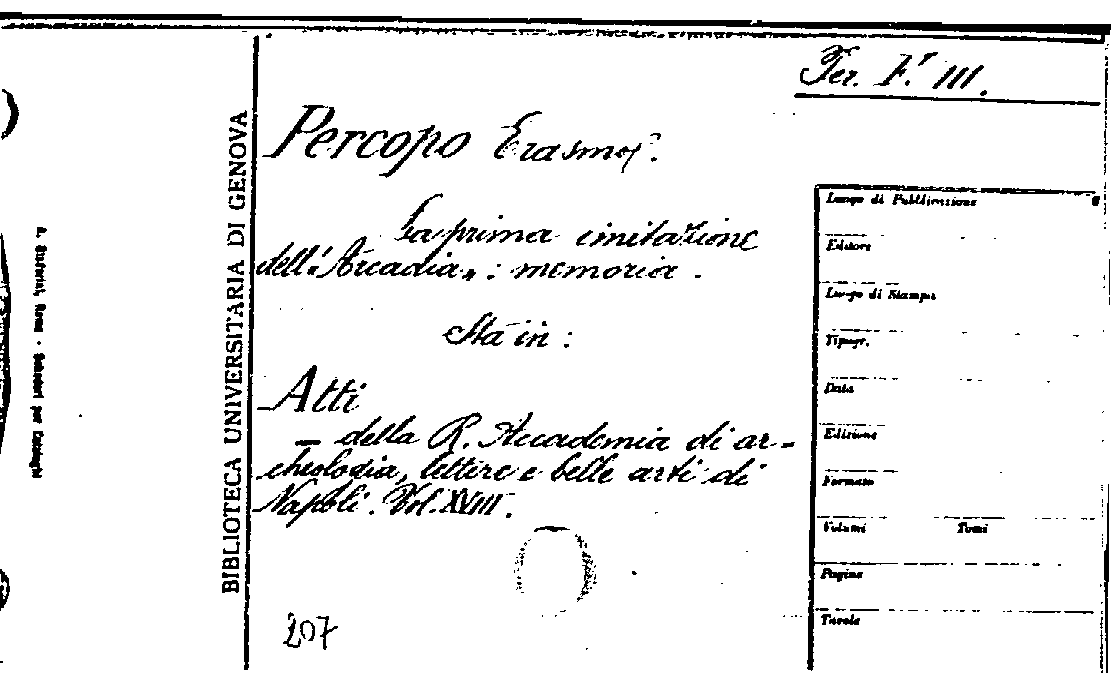 Per. F.r III.
Percopo Erasmo.
La prima imitazione
dell'"Arcadia": memoria.
Sta in:
Atti
— della R. Accademia di ar-
cheologia, lettere e belle arti di
Napoli. Vol. XVIII.
207
BIBLIOTECA UNIVERSITARIA DI GENOVA
Roma - Schedari per Cataloghi
Luogo di Pubblicazione
Editore
Luogo di Stampa
Tipogr.
Data
Edizione
Formato
Volumi Tomi
Pagine
Tavole